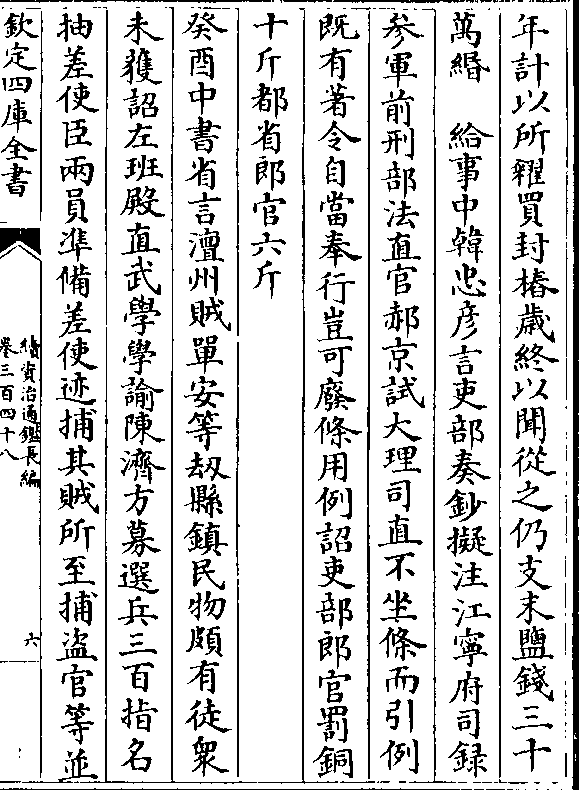 年計以所糴買封樁歲終以聞從之仍支末鹽錢三十
萬緡　給事中韓忠彦言吏部奏鈔擬注江寧府司録
參軍前刑部法直官郝京試大理司直不坐條而引例
既有著令自當奉行豈可廢條用例詔吏部郎官罰銅
十斤都省郎官六斤
癸酉中書省言澶州賊單安等刼縣鎮民物頗有徒衆
未獲詔左班殿直武學學諭陳濟方募選兵三百指名
抽差使臣兩員準備差使迹捕其賊所至捕盜官等並
欽定四庫全書
續資治通鑑長編
卷三百四十八
六